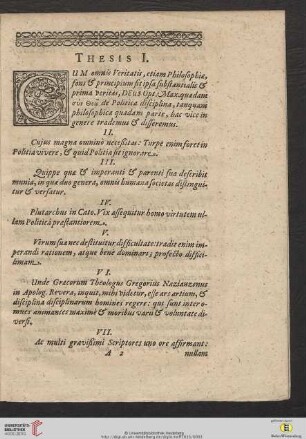 THESIS I.
CUM omnis Veritatis, etiam Philosophiæ,
fons & principium sit ipsa substantialis &
prima veritas, DEUS Opt. Max. quædam
σὺν Θεῷ de Politica disciplina, tanquam
philosophiæ quadam parte, hac vice in
genere trademus & disseremus.
II.
Cujus magna omnino necessitas: Turpe enim foret in
Politia vivere, & quid Politia sit ignorare.
III.
Quippe quæ & imperanti & parenti sua describit
munia, in quæ duo genera, omnis humana societas distingui-
tur & versatur.
IV.
Plutarchus in Cato. Vix assequitur homo virtutem ul-
lam Politicâ præstantiorem.
V.
Verùm sua nec destituitur difficultate: tradit enim im-
perandi rationem; atque benè dominari; profectò difficil-
limum.
VI.
Unde Græcorum Theologus Gregorius Nazianzenus
in Apolog. Revera, inquit, mihi videtur, esse ars artium, &
disciplina disciplinarum hominem regere: qui sunt inter o-
mnes animantes maximè & moribus varii & voluntate di-
versi.
VII.
Ac multi gravissimi Scriptores uno ore affirmant:
A 2 nullam
UNIVERSITÄTS-
BIBLIOTHEK
HEIDELBERG
© Universitätsbibliothek Heidelberg